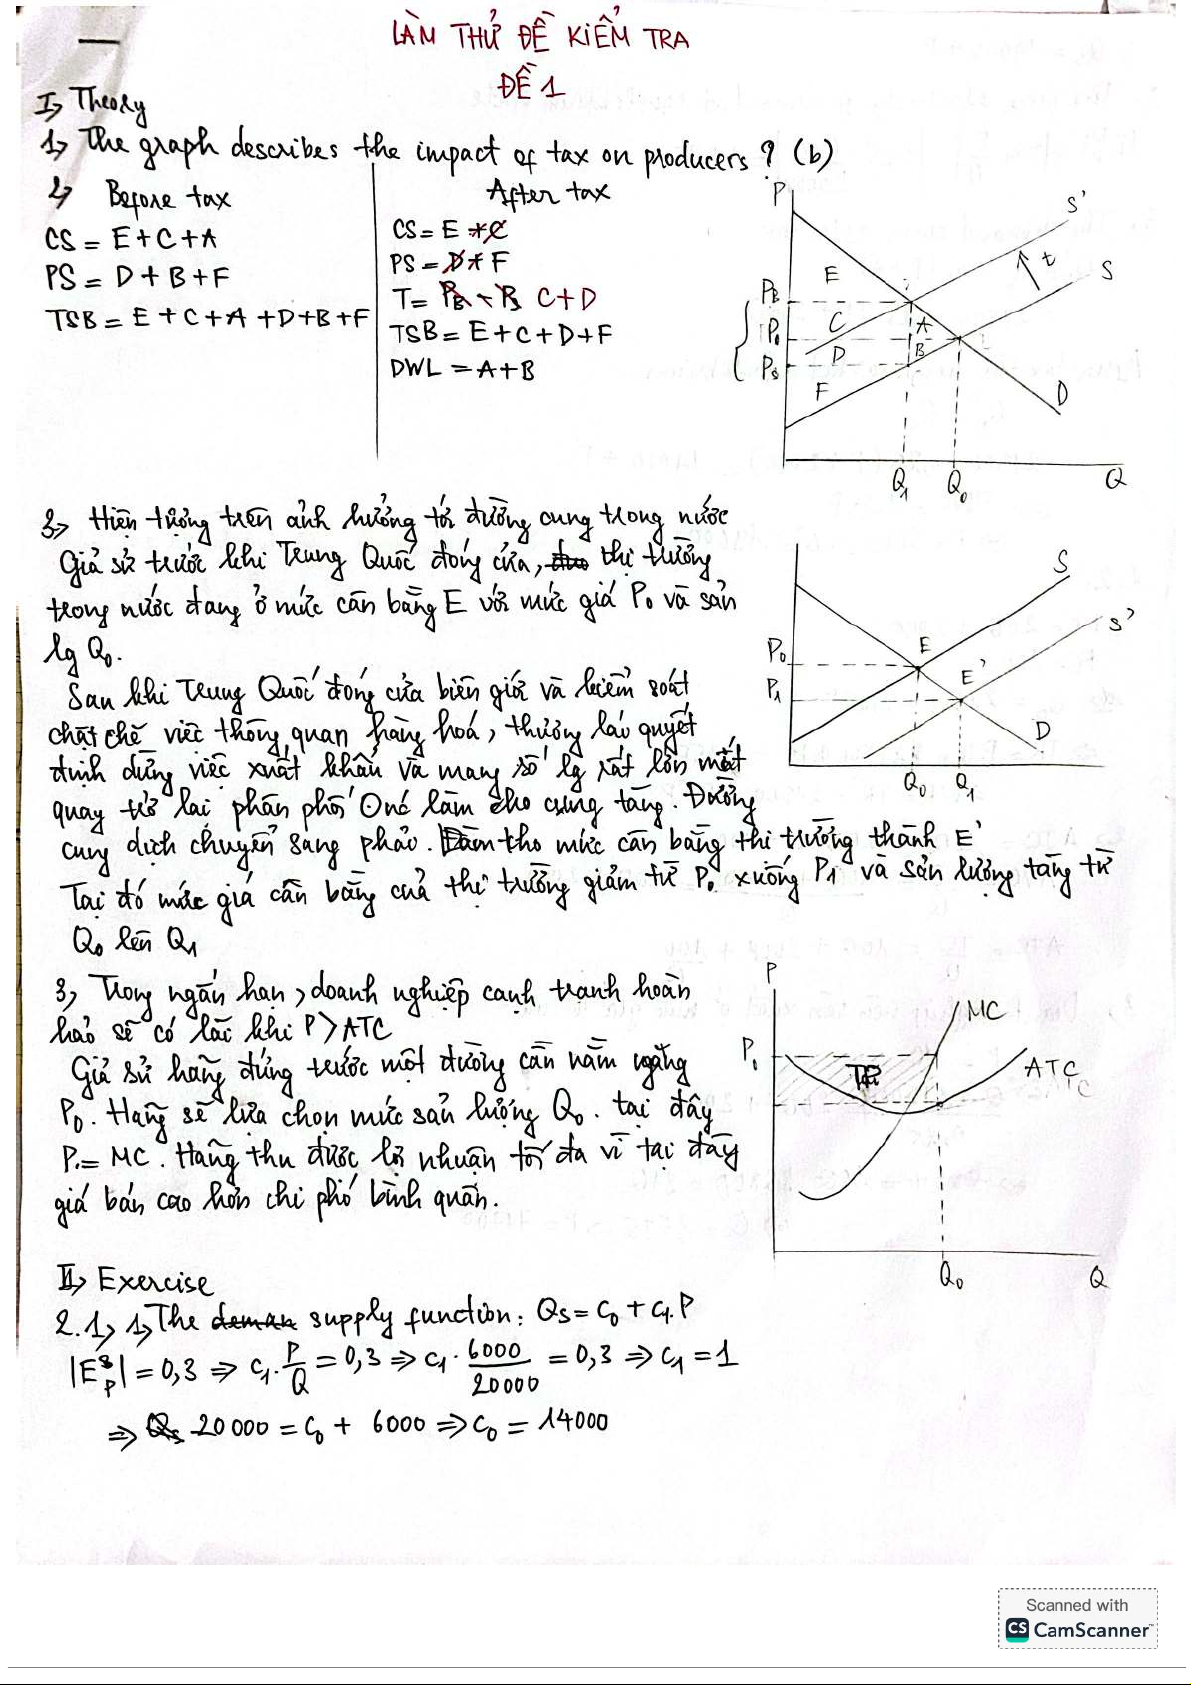 LÀM THỬ ĐỀ KIỂM TRA
ĐỀ 1
I, Theory
1, The graph describes the impact of tax on producers? (b)
2, Before tax
CS = E + C + A
PS = D + B + F
TSB = E + C + A + D + B + F
After tax
CS = E + C
PS = D + F
T = P_B - P_S C + D
TSB = E + C + D + F
DWL = A + B
P
S'
t
S
E
P_B
C
A
P_0
D
B
P_S
F
D
Q_1 Q_0 Q
3, Hiện tượng trên ảnh hưởng tới đường cung trong nước
Giả sử trước khi Trung Quốc đóng cửa, thị trường
trong nước đang ở mức cân bằng E với mức giá P_0 và sản
lg Q_0.
Sau khi Trung Quốc đóng cửa biên giới và kiểm soát
chặt chẽ việc thông quan hàng hoá, thương lái quyết
định dừng việc xuất khẩu và mang số lg rất lớn
quay trở lại phân phối làm cho cung tăng. Đường
cung dịch chuyển sang phải. Làm cho mức cân bằng thị trường thành E'
Tại đó mức giá cân bằng của thị trường giảm từ P_0 xuống P_1 và sản lượng tăng từ
Q_0 lên Q_1
S
S'
E
P_0
E'
P_1
D
Q_0 Q_1
3, Trong ngắn hạn, doanh nghiệp cạnh tranh hoàn
hảo sẽ có lãi khi P > ATC
Giả sử hãng đứng trước một đường cầu nằm ngang
P_0. Hãng sẽ lựa chọn mức sản lượng Q_0. tại đây
P = MC. Hãng thu được lợi nhuận tối đa vì tại đây
giá bán cao hơn chi phí bình quân.
P
MC
P_0
ATC
Q_0 Q
II, Exercise
2.1, 1, The deman supply function: Qs = C_0 + C_1.P
|E^S_P| = 0,3 ⇒ C_1 . P/Q = 0,3 ⇒ C_1 . 6000/20000 = 0,3 ⇒ C_1 = 1
⇒ Qs 20000 = C_0 + 6000 ⇒ C_0 = 14000
Scanned with
CS CamScanner